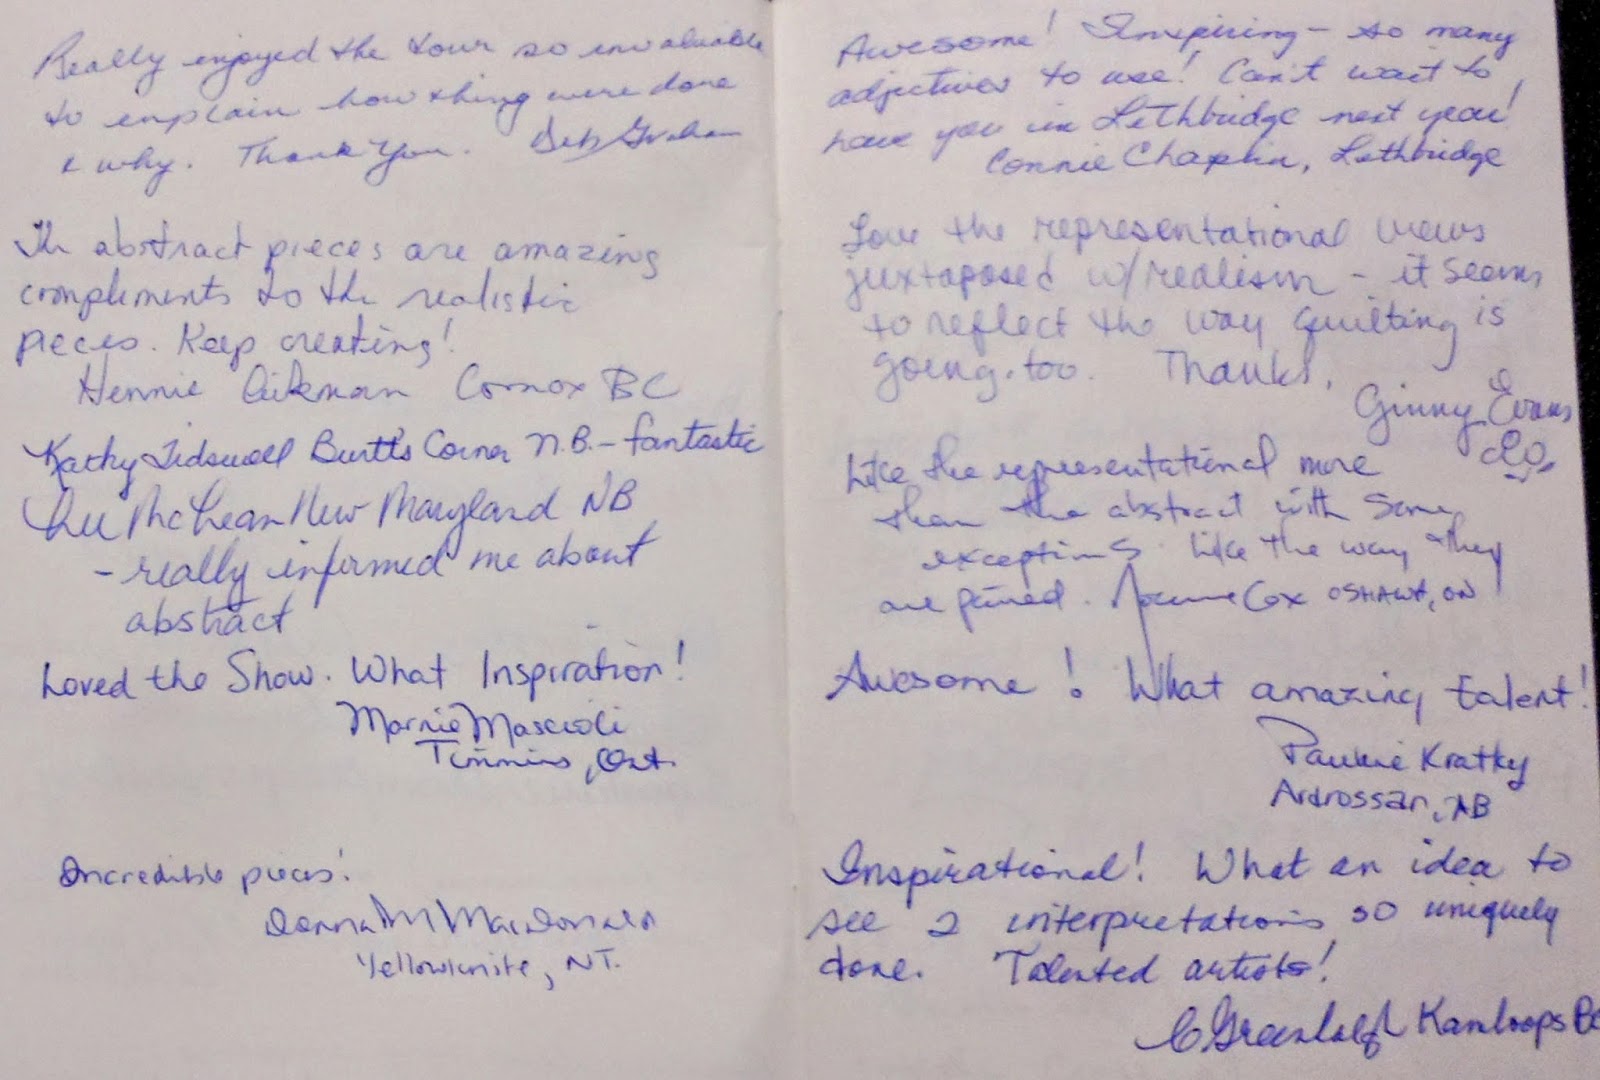 Really enjoyed the tour so invaluable
to explain how thing were done
& why. Thank You. Deb Graham
Th abstract pieces are amazing
compliments to the realistic
pieces. Keep creating!
Hennie Aikman Comox BC
Kathy Tidswell Burtt's Corner N.B. - fantastic
McLean New Maryland NB
- really informed me about
abstract
Loved the Show. What Inspiration!
Marnie Mascioli
Timmins, Ont.
Incredible pieces!
Donna M MacDonald
Yellowknife, NT.
Awesome! Inspiring - so many
adjectives to use! Can't wait to
have you in Lethbridge next year!
Connie Chaplin, Lethbridge
Love the representational views
juxtaposed w/ realism - it seems
to reflect the way quilting is
going. too. Thanks,
Ginny Evans
Like the representational more
than the abstract with some
exceptions. Like the way they
are joined. Cox OSHAWA, ON
Awesome! What amazing talent!
Pauline Kratky
Ardrossan, AB
Inspirational! What an idea to
see 2 interpretations so uniquely
done. Talented artists!
C Greenhalgh Kamloops BC